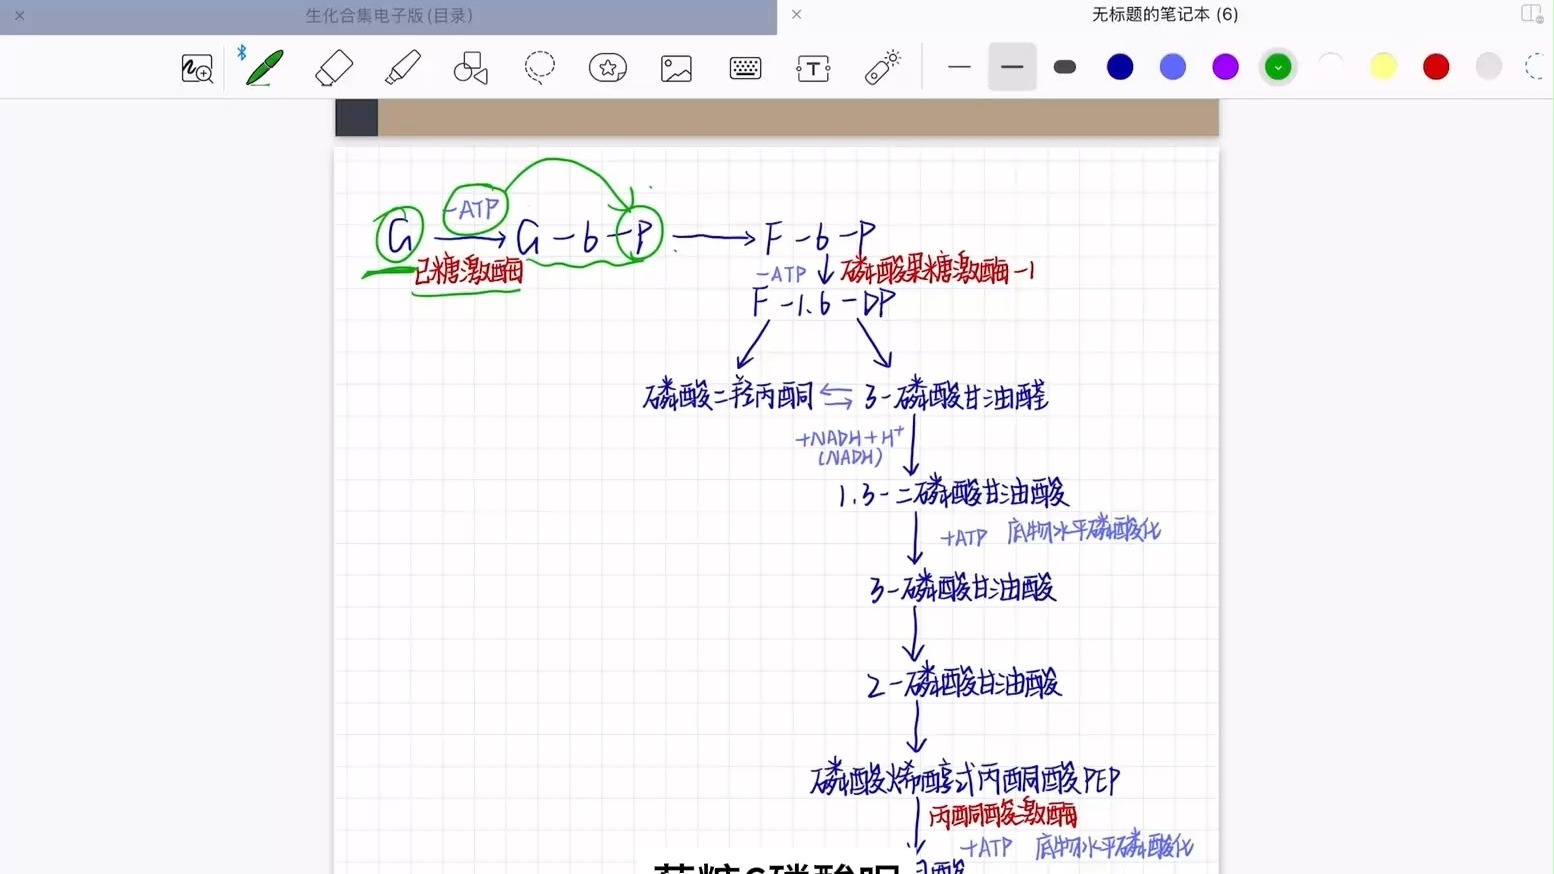 生化合集电子版(目录)
无标题的笔记本 (6)
T
G -ATP → G-6-P → F-6-P
己糖激酶
-ATP ↓ 磷酸果糖激酶-1
F-1.6-DP
磷酸二羟丙酮 ⇌ 3-磷酸甘油醛
+NADH+H⁺
(NADH)
1.3-二磷酸甘油酸
+ATP 底物水平磷酸化
3-磷酸甘油酸
2-磷酸甘油酸
磷酸烯醇式丙酮酸PEP
丙酮酸激酶
+ATP 底物水平磷酸化